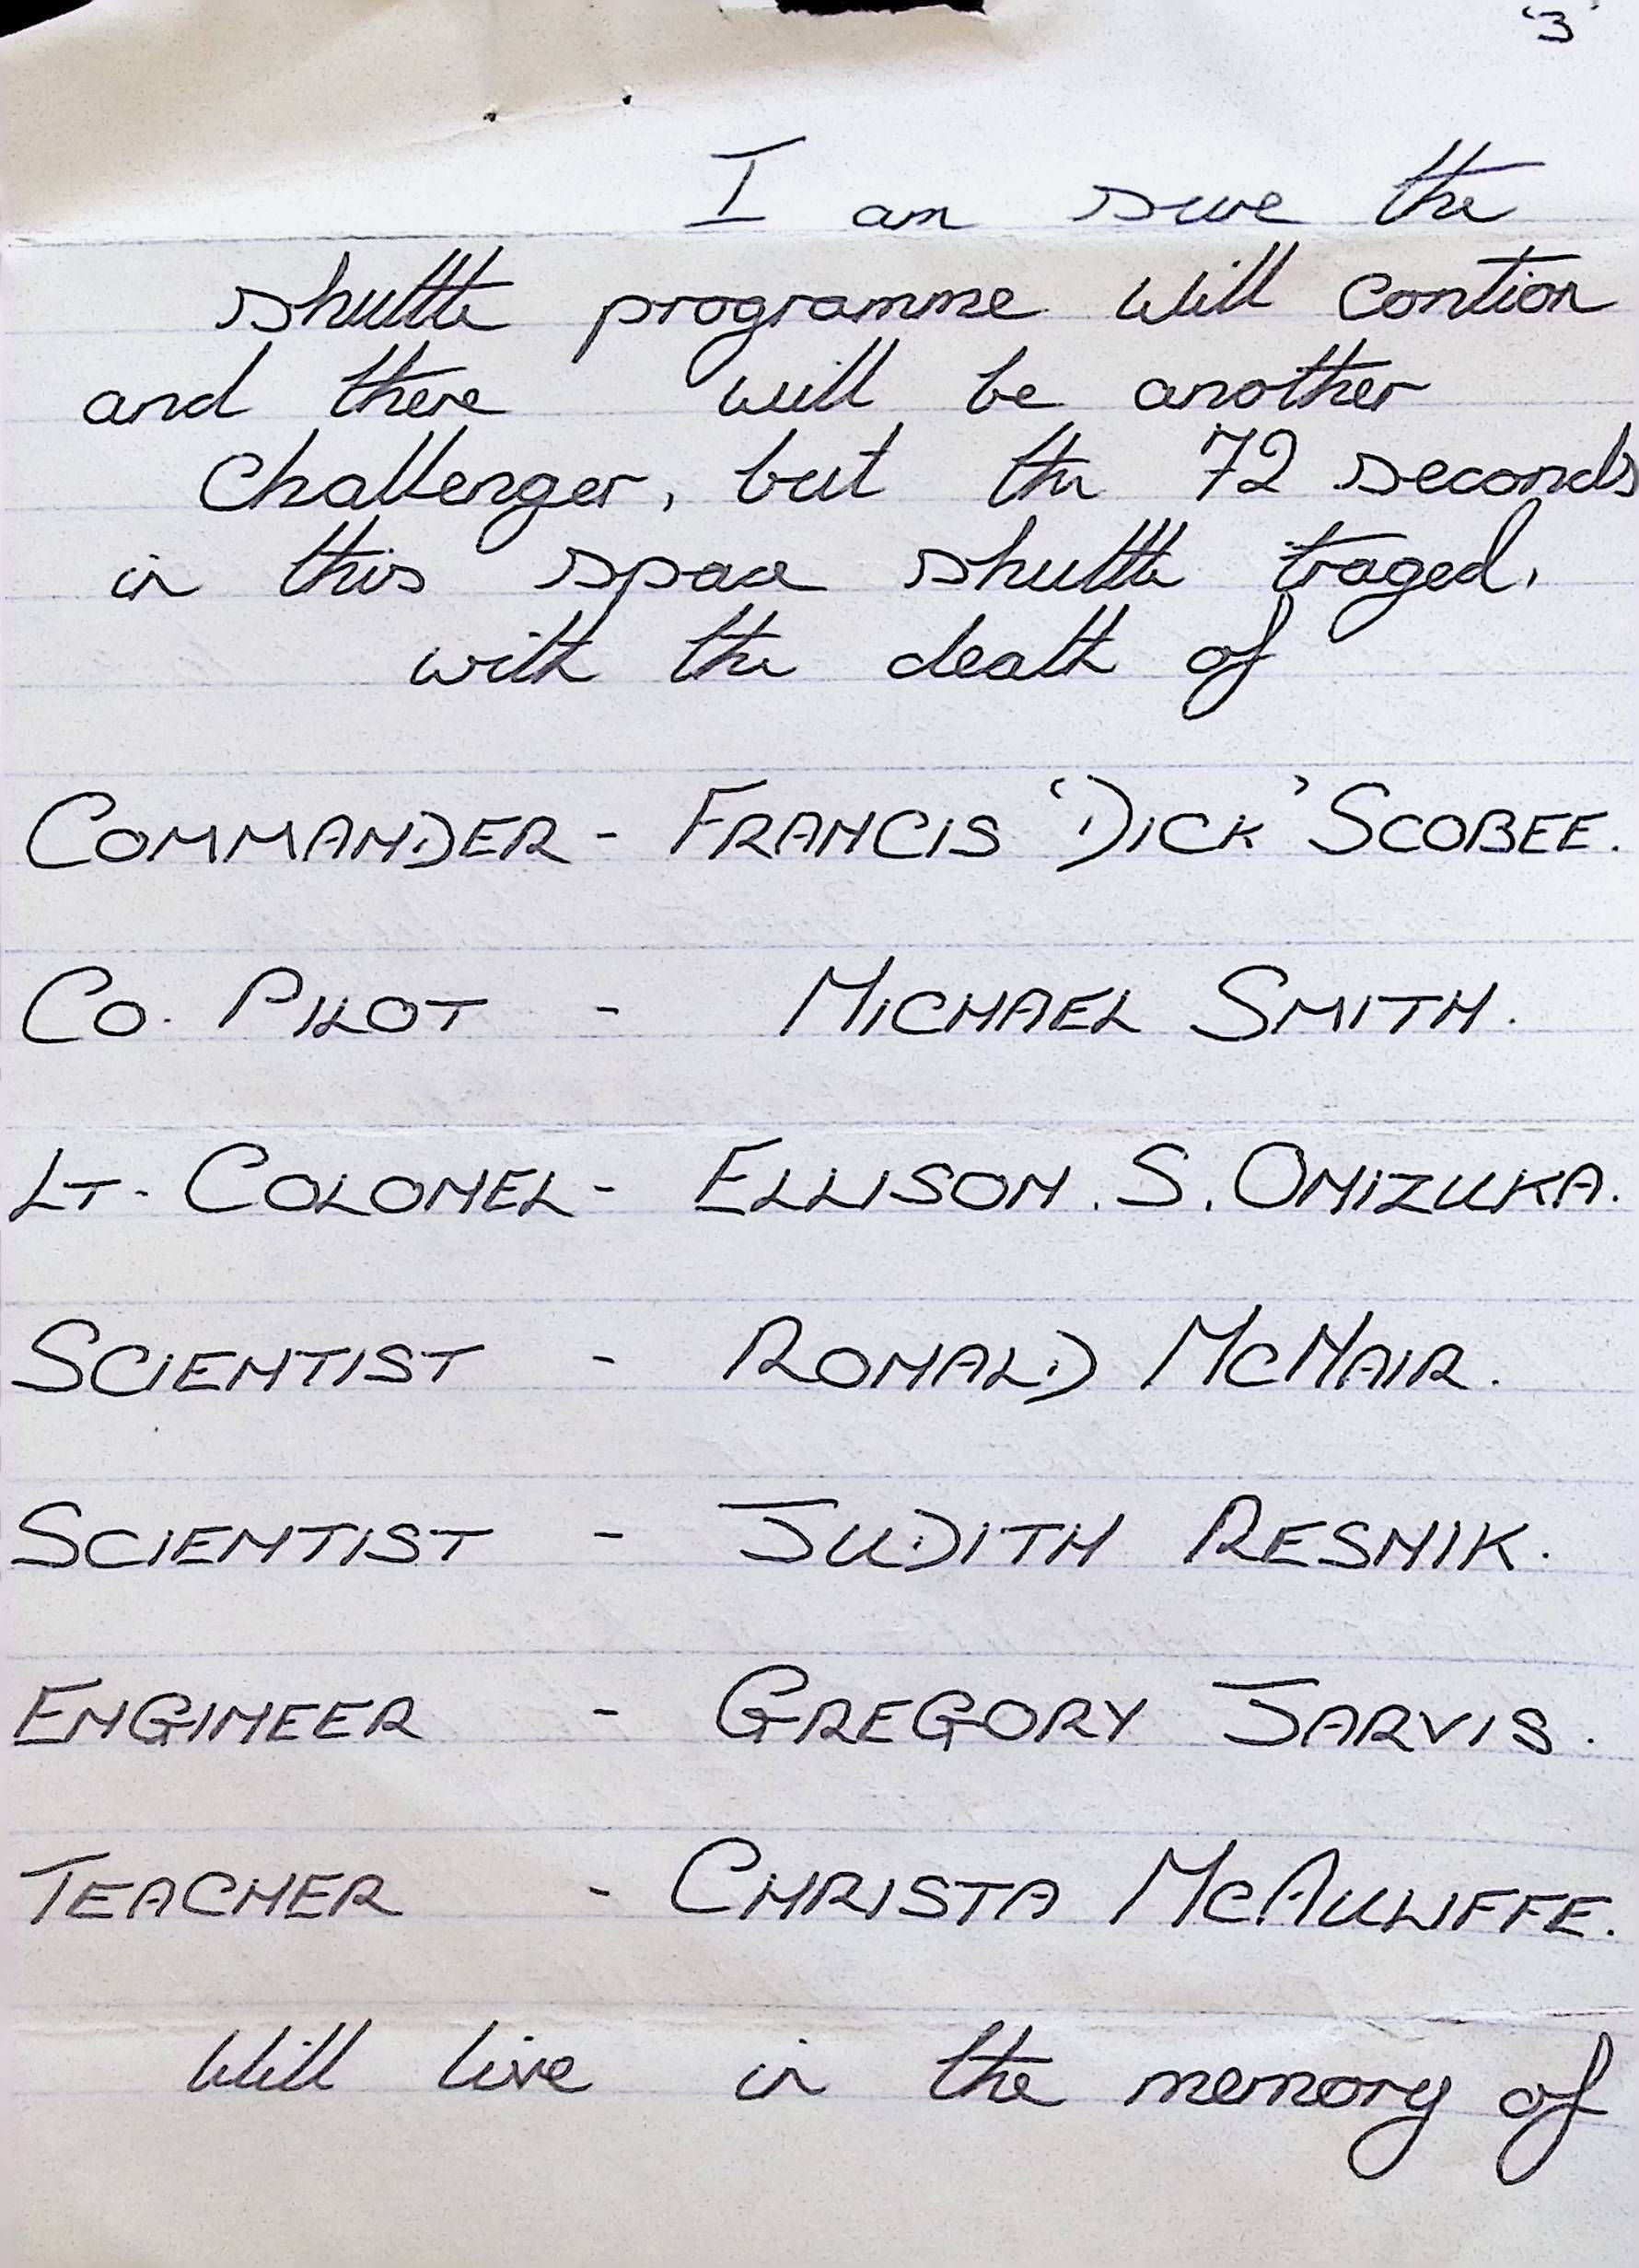 '3'
I am sure the
shuttle programme will contion
and there will be another
Challenger, but the 72 seconds
in this space shuttle traged.
with the death of
COMMANDER - FRANCIS 'DICK' SCOBEE.
CO. PILOT - MICHAEL SMITH.
LT. COLONEL - ELLISON. S. ONIZUKA.
SCIENTIST - RONALD MCNAIR.
SCIENTIST - JUDITH RESNIK.
ENGINEER - GREGORY JARVIS.
TEACHER - CHRISTA MCAULIFFE.
Will live in the memory of